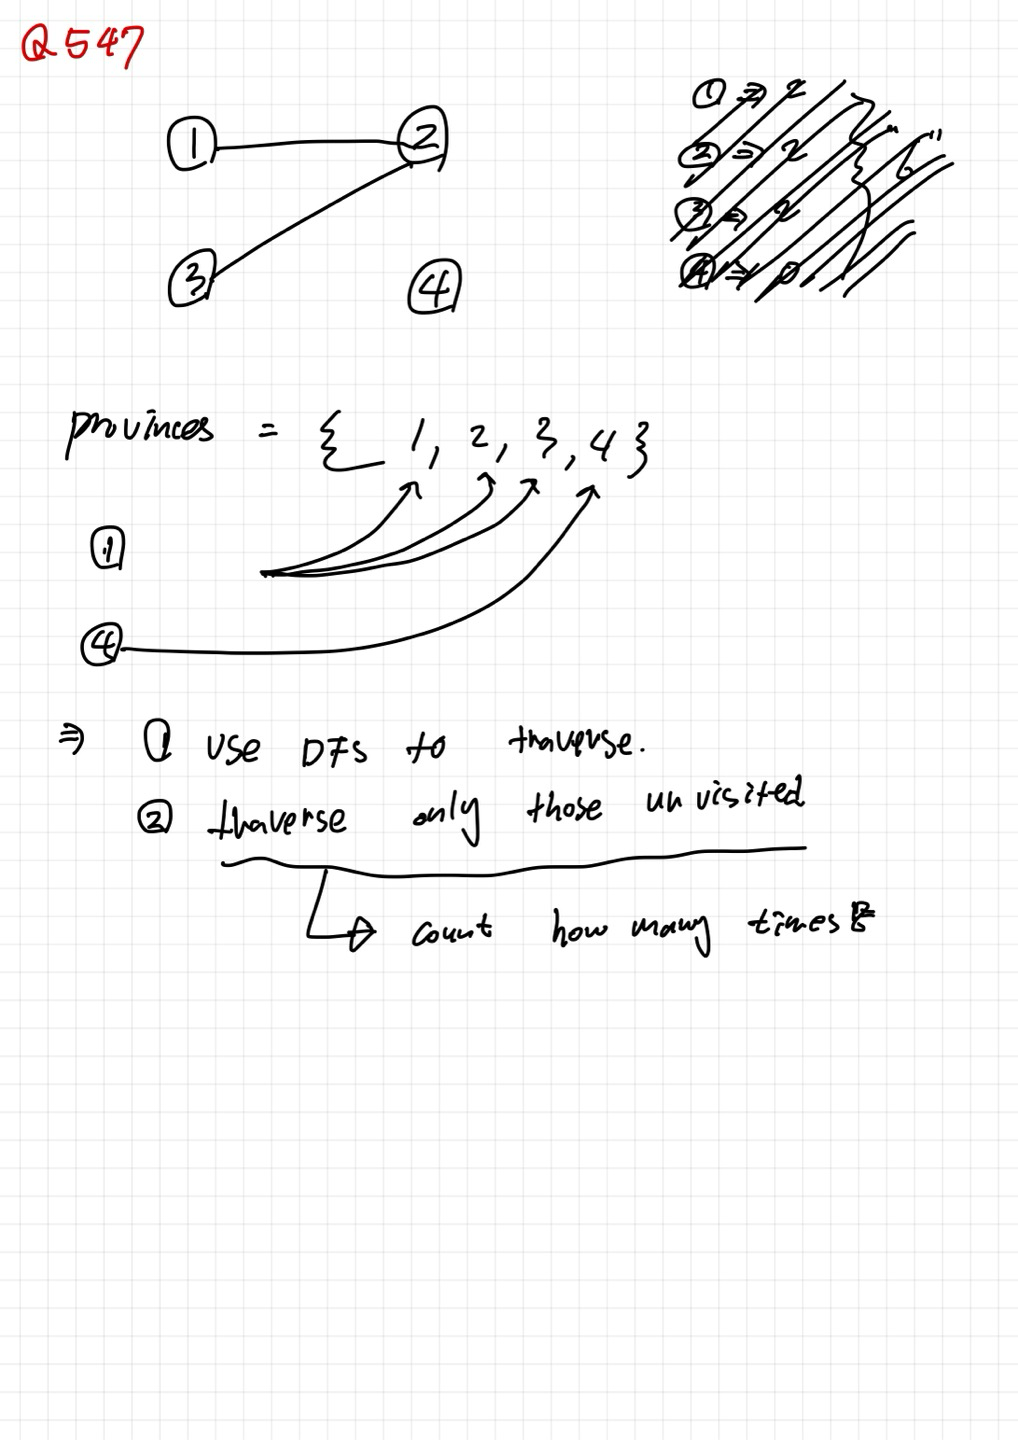 Q547
① ②
③ ④
① ⇒ 2
② ⇒ 2
③ ⇒ 2
④ ⇒ 0
"6"
provinces = { 1, 2, 3, 4 }
①
④
⇒ ① use DFS to traverse.
② traverse only those unvisited
count how many times